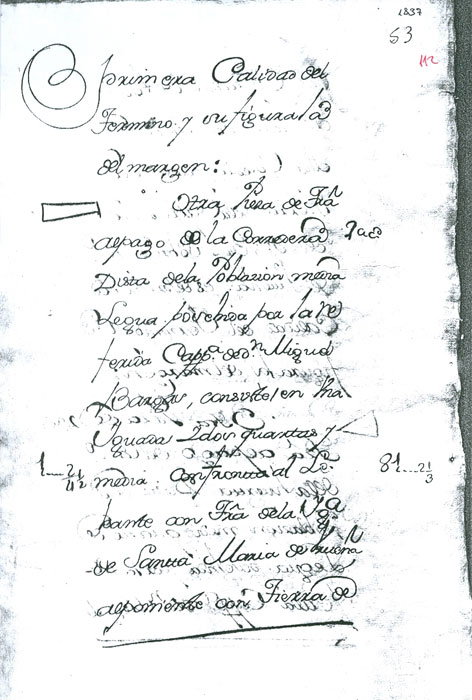 1837
53
112
primera Calidad del
Termino y su figura la
del margen:
Otra Pieza de Tra
al pago de la Corredera
Dista de la Poblazion media
Legua poseehida por la re
ferida Cappa de Dn Miguel
Bargas, consiste en una
Yguada 2 dos quartas y
media Confronta al Le-
bante con Tra de la Yga
de Santta Maria de buena
al poniente con Tierra de